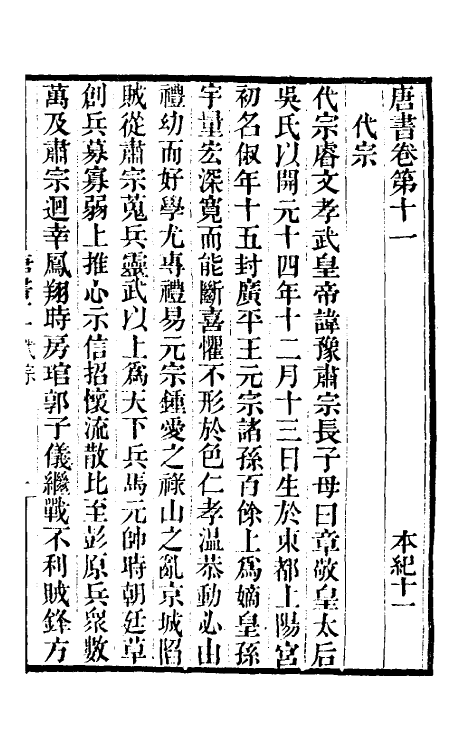 唐書卷第十一　本紀十一
代宗
代宗睿文孝武皇帝諱豫肅宗長子母曰章敬皇太后
吳氏以開元十四年十二月十三日生於東都上陽宮
初名俶年十五封廣平王元宗諸孫百餘上爲嫡皇孫
宇量宏深寬而能斷喜懼不形於色仁孝溫恭動必由
禮幼而好學尤專禮易元宗鍾愛之祿山之亂京城陷
賊從肅宗蒐兵靈武以上爲天下兵馬元帥時朝廷草
創兵募寡弱上推心示信招懷流散比至彭原兵衆數
萬及肅宗迴幸鳳翔時房琯郭子儀繼戰不利賊鋒方